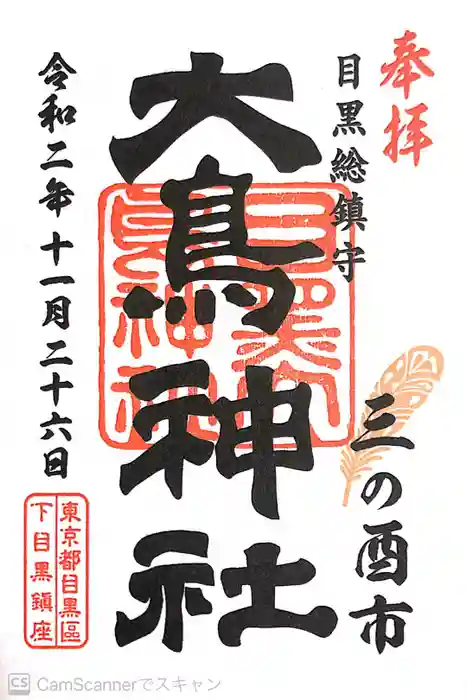 奉拝
目黒総鎮守
三の酉市
大鳥神社
令和二年十一月二十六日
東京都目黒區
下目黒鎮座
CS CamScannerでスキャン